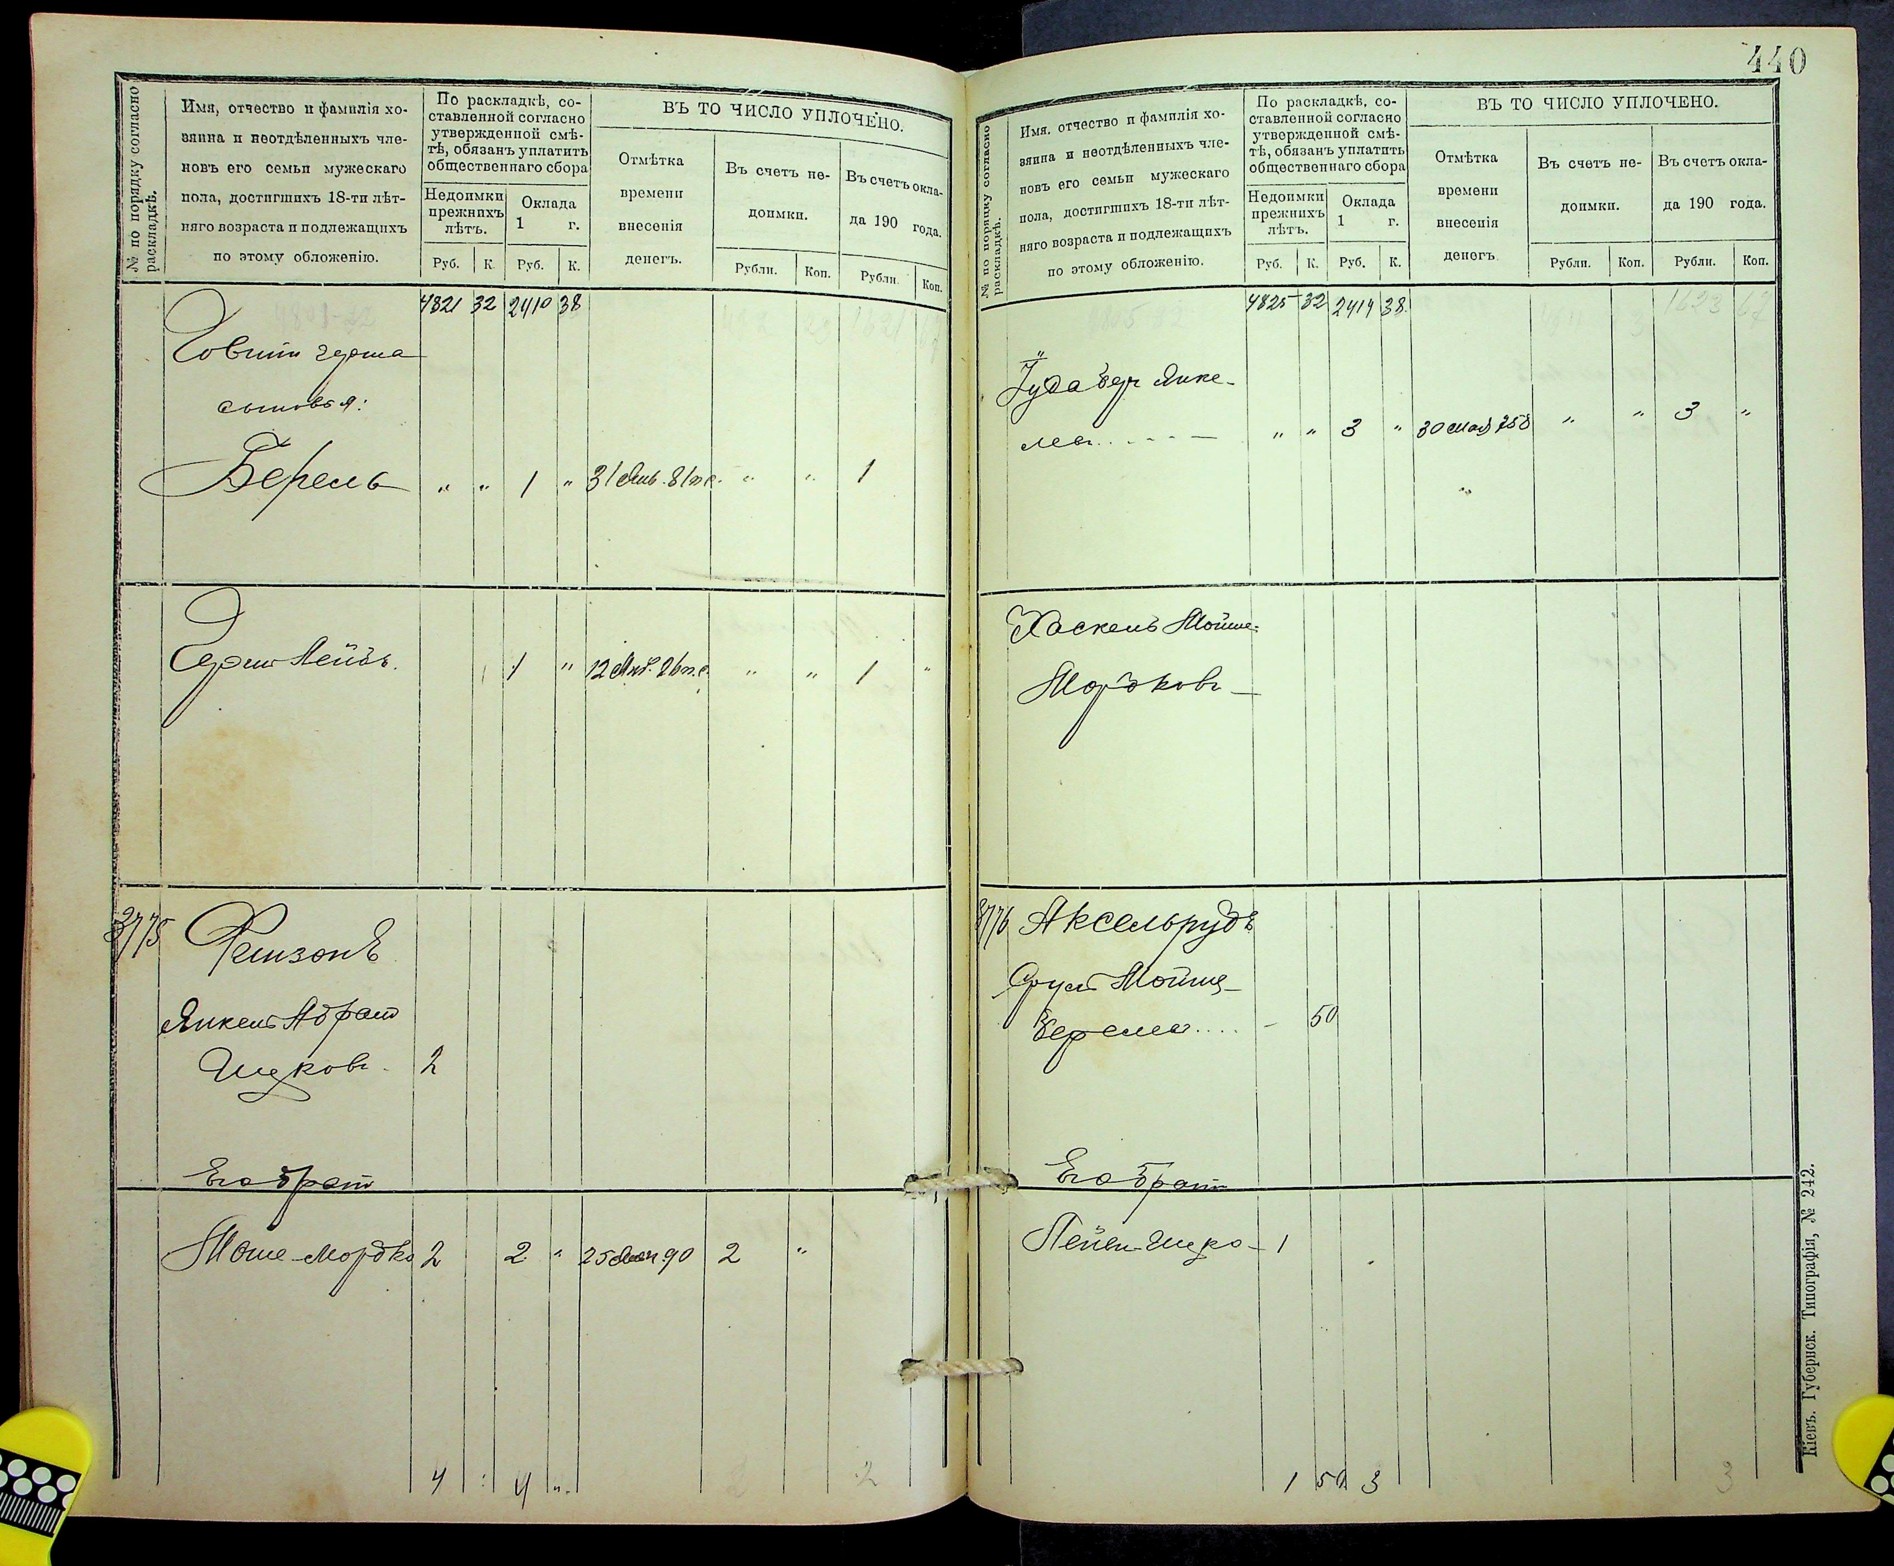 № по порядку согласно
раскладкѣ.
Имя, отчество и фамилія хо-
зяина и неотдѣленныхъ чле-
новъ его семьи мужескаго
пола, достигшихъ 18-ти лѣт-
няго возраста и подлежащихъ
по этому обложенію.
По раскладкѣ, со-
ставленной согласно
утвержденной смѣ-
тѣ, обязанъ уплатить
общественнаго сбора
Недоимки
прежнихъ
лѣтъ.
Оклада
1 г.
Руб. К. Руб. К.
ВЪ ТО ЧИСЛО УПЛОЧЕНО.
Отмѣтка
времени
внесенія
денегъ.
Въ счетъ не-
доимки.
Въ счетъ окла-
да 190 года.
Рубли. Коп. Рубли. Коп.
4821 32 2410 38
Герша
сыновья:
Берель " " 1 " 31 Янв. 81 " " 1
Герш Лейбъ. 1 " 12 26 " " 1 "
3775
Янкель Абрам
Ицковъ. 2
Его брат
Моше-Мордко 2 2 " 25 90 2 "
4 4 " 2
440
№ по порядку согласно
раскладкѣ.
Имя, отчество и фамилія хо-
зяина и неотдѣленныхъ чле-
новъ его семьи мужескаго
пола, достигшихъ 18-ти лѣт-
няго возраста и подлежащихъ
по этому обложенію.
По раскладкѣ, со-
ставленной согласно
утвержденной смѣ-
тѣ, обязанъ уплатить
общественнаго сбора
Недоимки
прежнихъ
лѣтъ.
Оклада
1 г.
Руб. К. Руб. К.
ВЪ ТО ЧИСЛО УПЛОЧЕНО.
Отмѣтка
времени
внесенія
денегъ.
Въ счетъ не-
доимки.
Въ счетъ окла-
да 190 года.
Рубли. Коп. Рубли. Коп.
4825 32 2414 38
1623 67
Іуда Бер Янке-
лев " " 3 " 30 мая 258 " " 3 "
Хаскель Мойше-
Мордковъ
3776 Аксельрудъ
Срул Мойше-
Берелев - 50
Его брат
Лейви-Ицко - 1
1 50 3
3
Кіевъ. Губернск. Типографія, № 242.